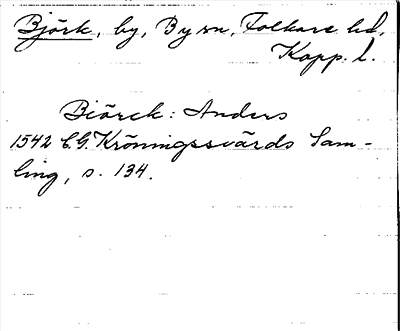 Björk, by, By sn, Folkare hd,
Kopp. l.
Biörck: Anders
1542 C.G. Kröningssvärds Sam-
ling, s. 134.